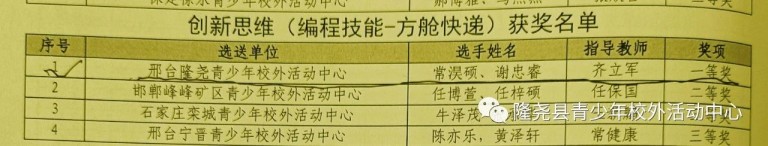 创新思维（编程技能-方舱快递）获奖名单
序号 选送单位 选手姓名 指导教师 奖项
1 邢台隆尧青少年校外活动中心 常淏硕、谢忠睿 齐立军 一等奖
2 邯郸峰峰矿区青少年校外活动中心 任博萱、任梓硕 任保国 二等奖
3 石家庄栾城青少年校外活动中心 牛泽茂
4 邢台宁晋青少年校外活动中心 陈亦乐，黄泽轩 常健康 三等奖
隆尧县青少年校外活动中心